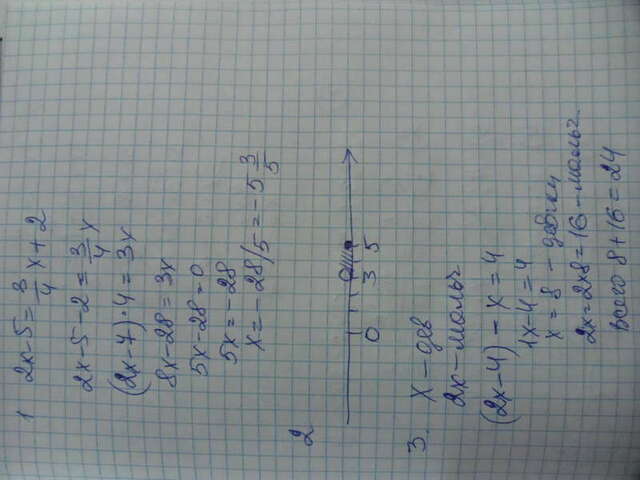 1 2x-5=3/4 x+2
2x-5-2=3/4 x
(2x-7)·4=3x
8x-28=3x
5x-28=0
5x=-28
x=-28/5=-5 3/5
2
0 3 5
3. X-дев
2x-мальч
(2x-4)-x=4
1x-4=4
x=8-девчки
2x=2x8=16-мальч.
Всего 8+16=24